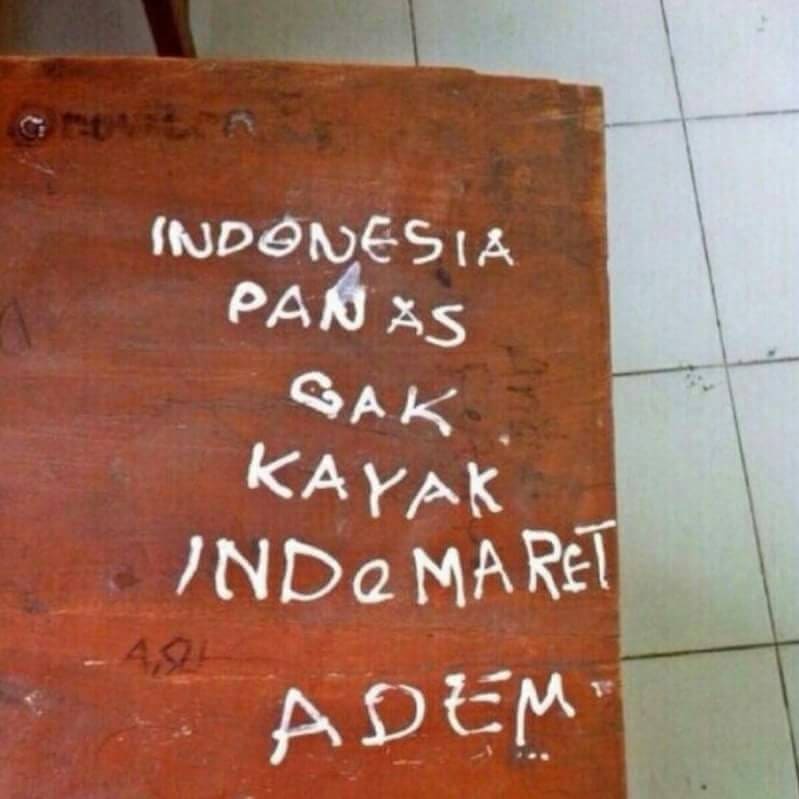 INDONESIA
PANAS
GAK
KAYAK
INDOMARET
ADEM